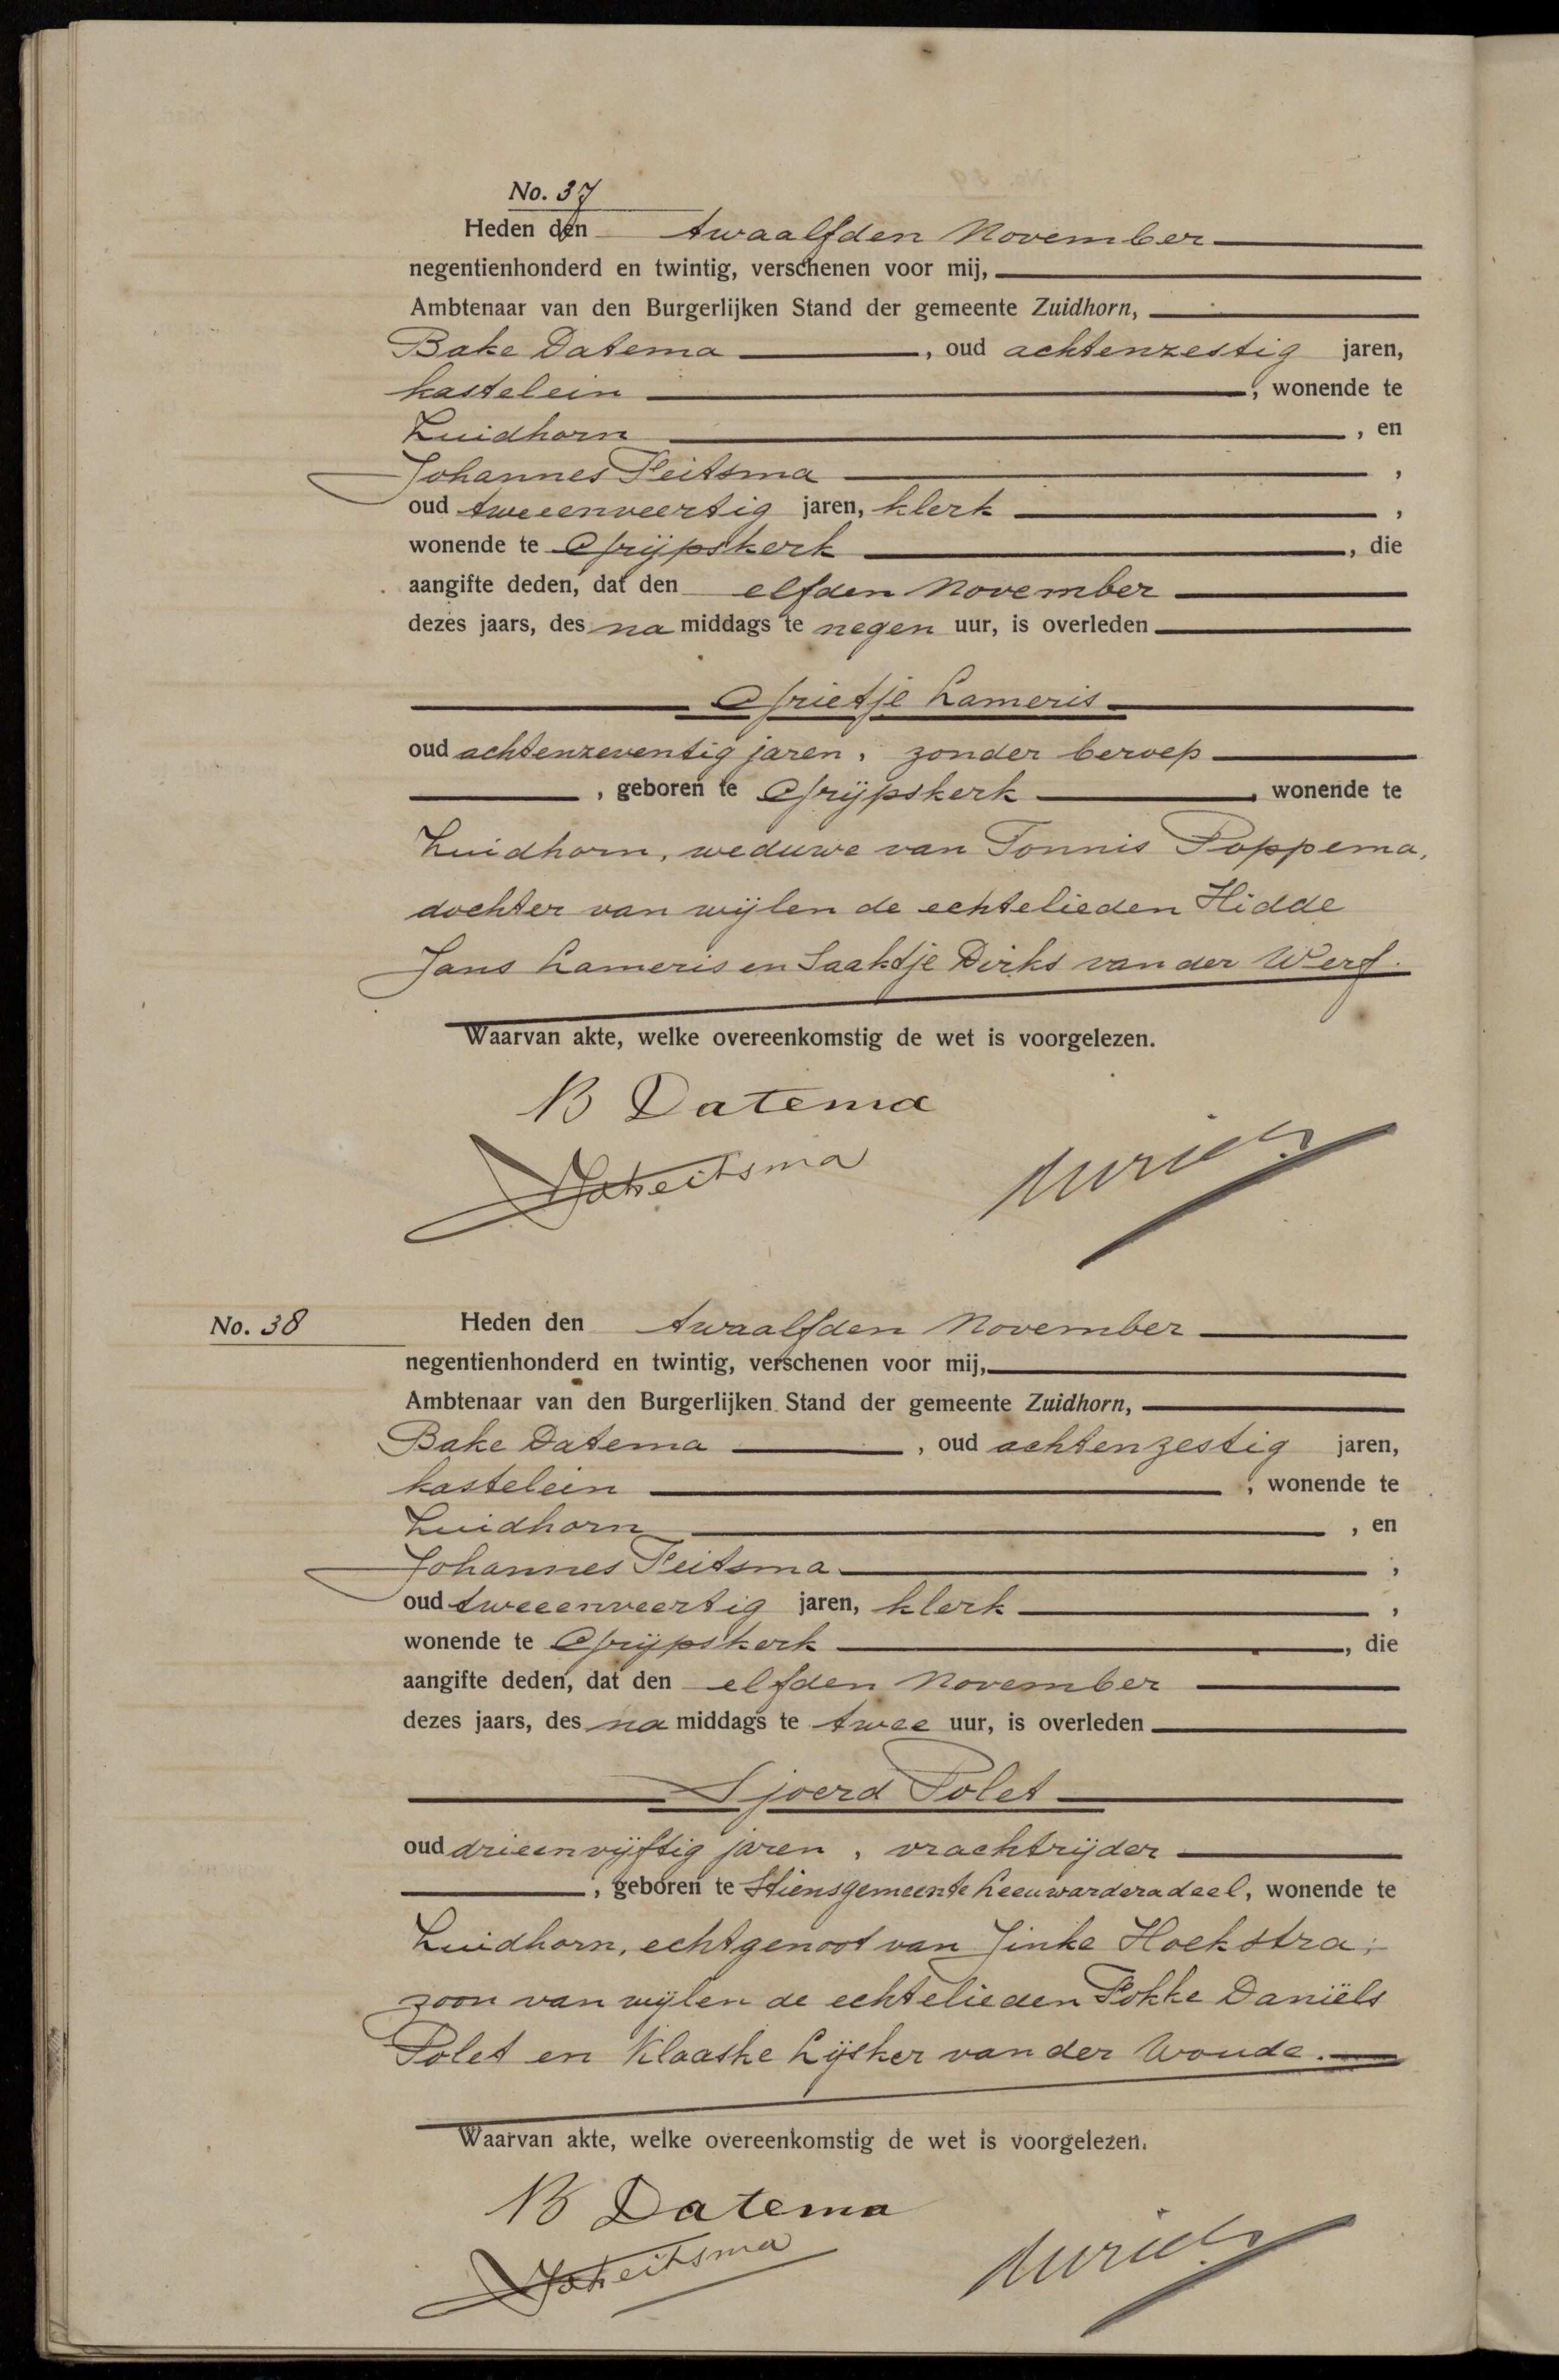 No. 37
Heden den twaalfden November
negentienhonderd en twintig, verschenen voor mij,
Ambtenaar van den Burgerlijken Stand der gemeente Zuidhorn,
Bake Datema, oud achtenzestig jaren,
kastelein, wonende te
Zuidhorn, en
Johannes Feitsma,
oud tweeenveertig jaren, klerk,
wonende te Grijpskerk, die
aangifte deden, dat den elfden November
dezes jaars, des na middags te negen uur, is overleden
Grietje Lameris
oud achtenzeventig jaren, zonder beroep
, geboren te Grijpskerk, wonende te
Zuidhorn, weduwe van Tonnis Poppema,
dochter van wijlen de echtelieden Hidde
Jans Lameris en Saaktje Dirks van der Werf.
Waarvan akte, welke overeenkomstig de wet is voorgelezen.
B Datema
Joh Feitsma
No. 38
Heden den twaalfden November
negentienhonderd en twintig, verschenen voor mij,
Ambtenaar van den Burgerlijken Stand der gemeente Zuidhorn,
Bake Datema, oud achtenzestig jaren,
kastelein, wonende te
Zuidhorn, en
Johannes Feitsma,
oud tweeenveertig jaren, klerk,
wonende te Grijpskerk, die
aangifte deden, dat den elfden November
dezes jaars, des na middags te twee uur, is overleden
Sjoerd Polet
oud drieenvijftig jaren, vrachtrijder
, geboren te Stiens gemeente Leeuwarderadeel, wonende te
Zuidhorn, echtgenoot van Jinke Hoekstra,
zoon van wijlen de echtelieden Fokke Daniëls
Polet en Klaaske Lijsker van der Woude.
Waarvan akte, welke overeenkomstig de wet is voorgelezen.
B Datema
Joh Feitsma